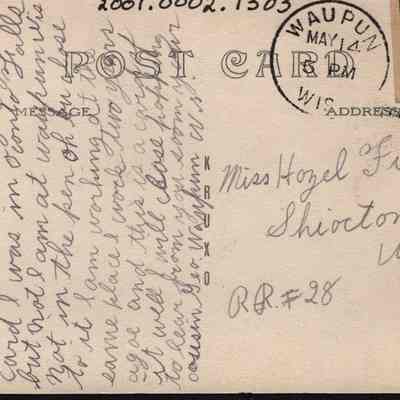 2001.0002.1303
POST CARD
WAUPUN
MAY 14
5 PM
WIS.
MESSAGE
ADDRESS
KRUXO
card I was in Fond Falls
but not I am at waupun wis
not in the pen oh you lose
to it I am working at the
same place I work two years
agoe and this is a
it well I will close hopping
to hear from you soon your
cousin Geo. Waupun Wis.
Miss Hazel Fi
Shiocton
W
R.R. #28